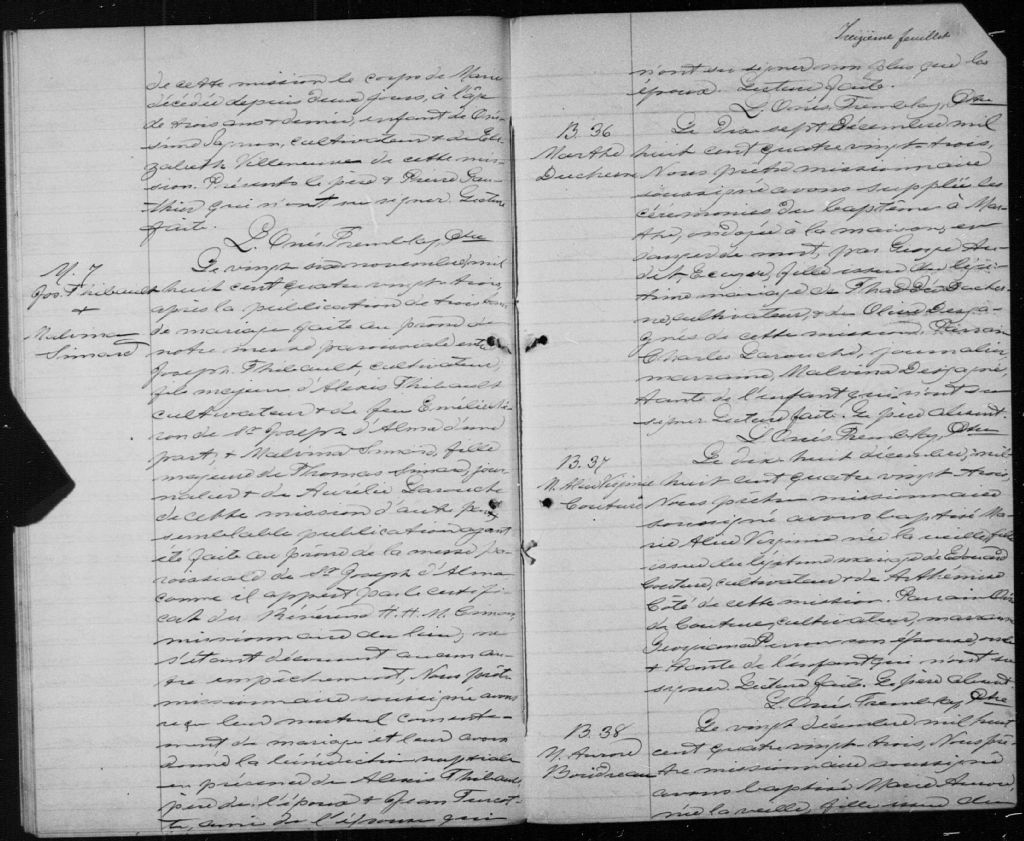 de cette mission le corps de Marie
décédée depuis deux jours, à l'âge
de trois ans & demie, enfant de Oné-
sime Gagnon, cultivateur & de Eli-
zabeth Villeneuve de cette mis-
sion. Présents le père & Pierre Gau-
thier qui n'ont su signer. Lecture
faite.
L. Onés. Tremblay, Ptre
M. 7
Jos. Thibault
&
Malvina
Simard
Le vingt six novembre, mil
huit cent quatre vingt-trois,
après la publication de trois bans
de mariage faite au prône de
notre messe paroissiale entre
Joseph Thibault, cultivateur,
fils majeur d'Alexis Thibault
cultivateur & de feu Emélie
ron de St Joseph d'Alma d'une
part, & Malvina Simard, fille
majeure de Thomas Simard, jour-
nalier & de Aurélie Larouche
de cette mission d'autre part,
semblable publication ayant
été faite au prône de la messe pa-
roissiale de St Joseph d'Alma
comme il appert par le certifi-
cat du Révérend H. H. M.
missionnaire du lieu, ne
s'étant découvert aucun au-
tre empêchement, Nous prêtre
missionnaire soussigné avons
reçu leur mutuel consente-
ment de mariage et leur avons
donné la bénédiction nuptiale
en présence de Alexis Thibault
père de l'époux & Jean Turcot-
te, ami de l'épouse qui
Treizième feuillet
n'ont su signer non plus que les
époux. Lecture faite.
L. Onés. Tremblay, Ptre
B. 36
Marthe
Duchesne
Le dix sept décembre mil
huit cent quatre vingt trois,
Nous prêtre missionnaire
soussigné avons suppléé les
cérémonies du baptême à Mar-
the, ondoyée à la maison, en
danger de mort, par George Au-
det, Ecuyer, fille issue du légi-
time mariage de Thaddée Duches-
ne, cultivateur, & de Olive Desga-
gnés de cette mission. Parrain
Charles Larouche, journalier,
marraine, Malvina Desgagné,
tante de l'enfant qui n'ont su
signer. Lecture faite. Le père absent.
L. Onés. Tremblay, Ptre
B. 37
M. Alice Virginie
Couture
Le dix-huit décembre, mil
huit cent quatre vingt trois,
Nous prêtre missionnaire
soussigné avons baptisé Ma-
rie Alice Virginie née la veille, fille
issue du légitime mariage de Edouard
Couture, cultivateur & de Arthémise
Côté de cette mission. Parrain
de Couture, cultivateur, marraine
Georgiana Perron son épouse, oncle
& tante de l'enfant qui n'ont su
signer. Lecture faite. Le père absent.
L. Onés. Tremblay, Ptre
B. 38
M. Aurore
Boudreau
Le vingt décembre mil huit
cent quatre vingt-trois, Nous prê-
tre missionnaire soussigné
avons baptisé Marie Aurore
née la veille, fille issue du